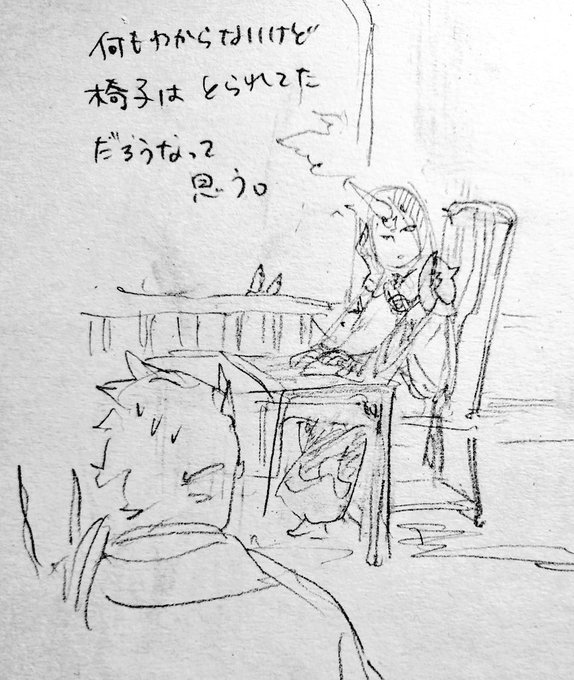 何もわからないけど
椅子は とられてた
だろうなって
思う。